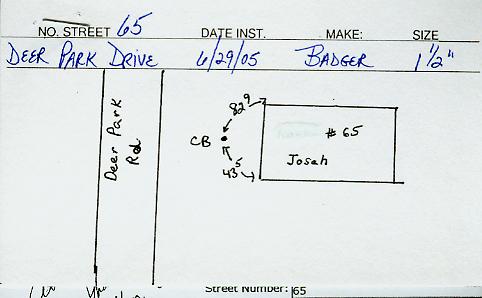 NO. STREET 65 DATE INST. MAKE: SIZE
DEER PARK DRIVE 6/29/05 BADGER 1 1/2"
Deer Park Rd
82⁹
CB
43⁵
# 65
Josah
Street Number: 65